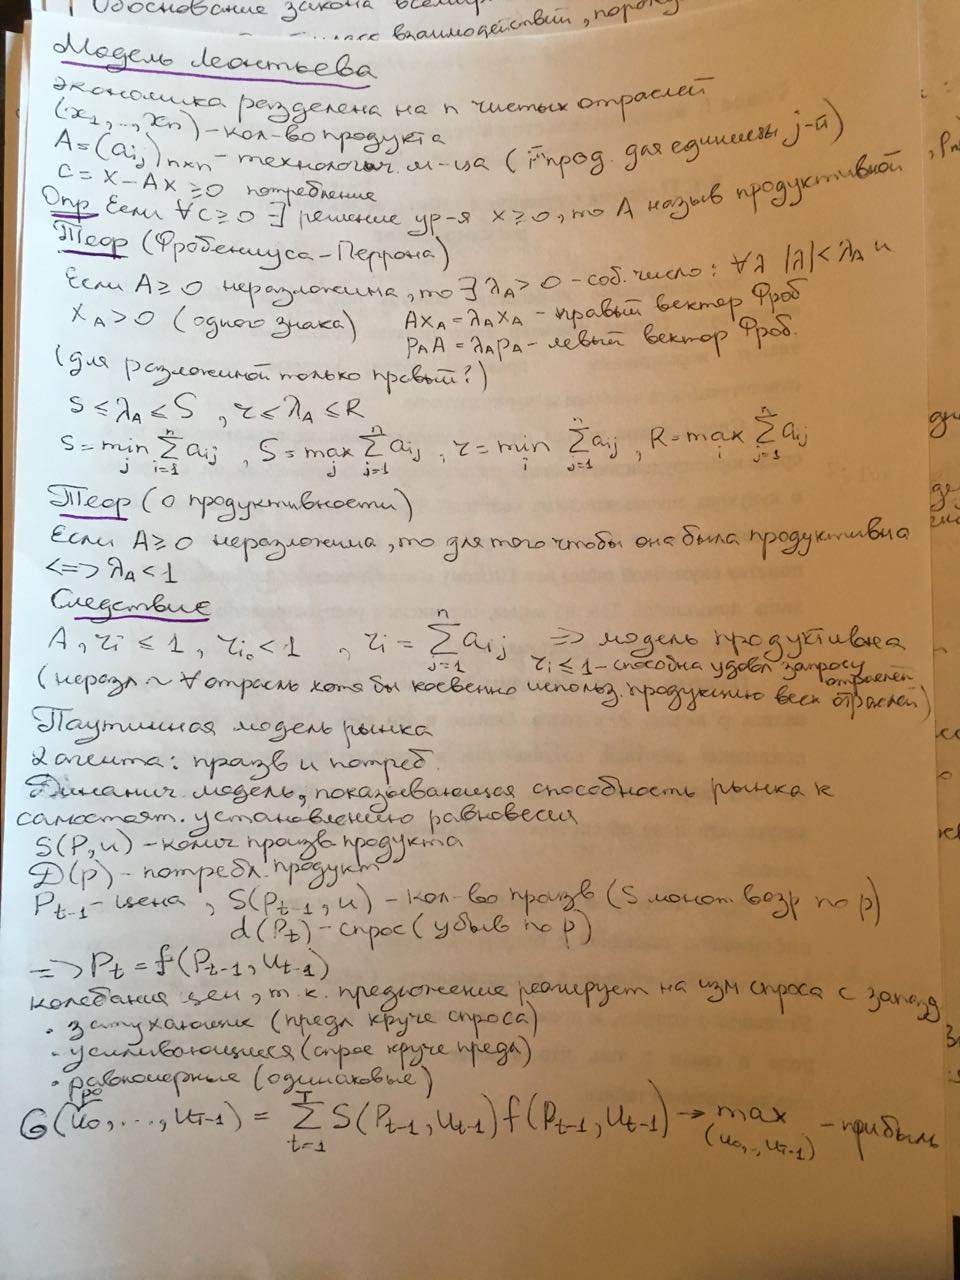 Обоснование закона всемир
взаимодействий, порожд
Модель Леонтьева
экономика разделена на n чистых отраслей
(x₁,...,xₙ) - кол-во продукта
A=(aᵢⱼ)ₙₓₙ - технологич. м-ца (i прод. для единицы j-й)
c = x - Ax ≥ 0 потребление
Опр Если ∀c≥0 ∃ решение ур-я x≥0, то A назыв продуктивной
Теор (Фробениуса-Перрона)
Если A≥0 неразложима, то ∃ λ_A>0 - соб. число: ∀λ |λ|<λ_A и
x_A>0 (одного знака) Ax_A=λ_A x_A - правый вектор Фроб
p_A A=λ_A p_A - левый вектор Фроб.
(для разложимой только правый?)
s ≤ λ_A ≤ S , r ≤ λ_A ≤ R
s = min_j Σ_{i=1}^n aᵢⱼ , S = max_j Σ_{i=1}^n aᵢⱼ , r = min_i Σ_{j=1}^n aᵢⱼ , R = max_i Σ_{j=1}^n aᵢⱼ
Теор (о продуктивности)
Если A≥0 неразложима, то для того чтобы она была продуктивна
<=> λ_A < 1
Следствие
A, rᵢ ≤ 1, r_{i₀} < 1 , rᵢ = Σ_{j=1}^n aᵢⱼ => модель продуктивна
rᵢ ≤ 1 - способна удовл запросу отраслей
(неразл ~ ∀ отрасль хотя бы косвенно использ. продукцию всех отраслей)
Паутинная модель рынка
2 агента: произв и потреб.
Динамич. модель, показывающая способность рынка к
самостоят. установлению равновесия
S(P,u) - колич произв продукта
D(p) - потребл. продукт
P_{t-1} - цена , S(P_{t-1},u) - кол-во произв (S монот. возр по p)
d(P_t) - спрос (убыв по p)
=> P_t = f(P_{t-1}, u_{t-1})
колебания цен, т.к. предложение реагирует на изм спроса с запазд
· затухающие (предл круче спроса)
· усиливающиеся (спрос круче предл)
· равномерные (одинаковые)
G(u₀,...,u_{T-1}) = Σ_{t=1}^T S(P_{t-1},u_{t-1}) f(P_{t-1},u_{t-1}) → max_{(u₀,..,u_{T-1})} - прибыль